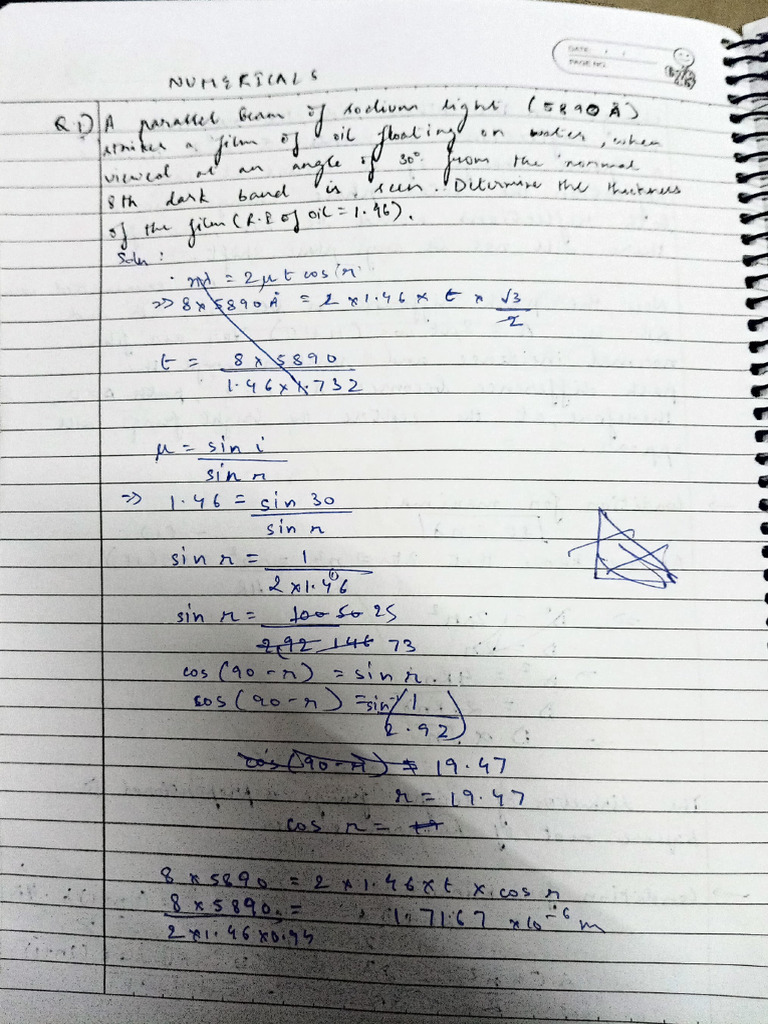 DATE: / /
PAGE NO.
NUMERICALS
Q1) A parallel beam of sodium light (5890 Å)
strikes a film of oil floating on water, when
viewed at an angle of 30° from the normal
8th dark band is seen. Determine the thickness
of the film (R.I of oil = 1.46).
Soln :
nλ = 2μt cos r
=> 8 x 5890 Å = 2 x 1.46 x t x √3/2
t = 8 x 5890 / 1.46 x 1.732
μ = sin i / sin r
=> 1.46 = sin 30 / sin r
sin r = 1 / 2 x 1.46
sin r = 100 50 25 / 2.92 146 73
cos (90 - r) = sin r
cos (90 - r) = sin⁻¹ (1 / 2.92)
cos (90 - r) = 19.47
r = 19.47
cos r =
8 x 5890 = 2 x 1.46 x t x cos r
8 x 5890 / 2 x 1.46 x 0.94 = 1.7167 x 10⁻⁶ m